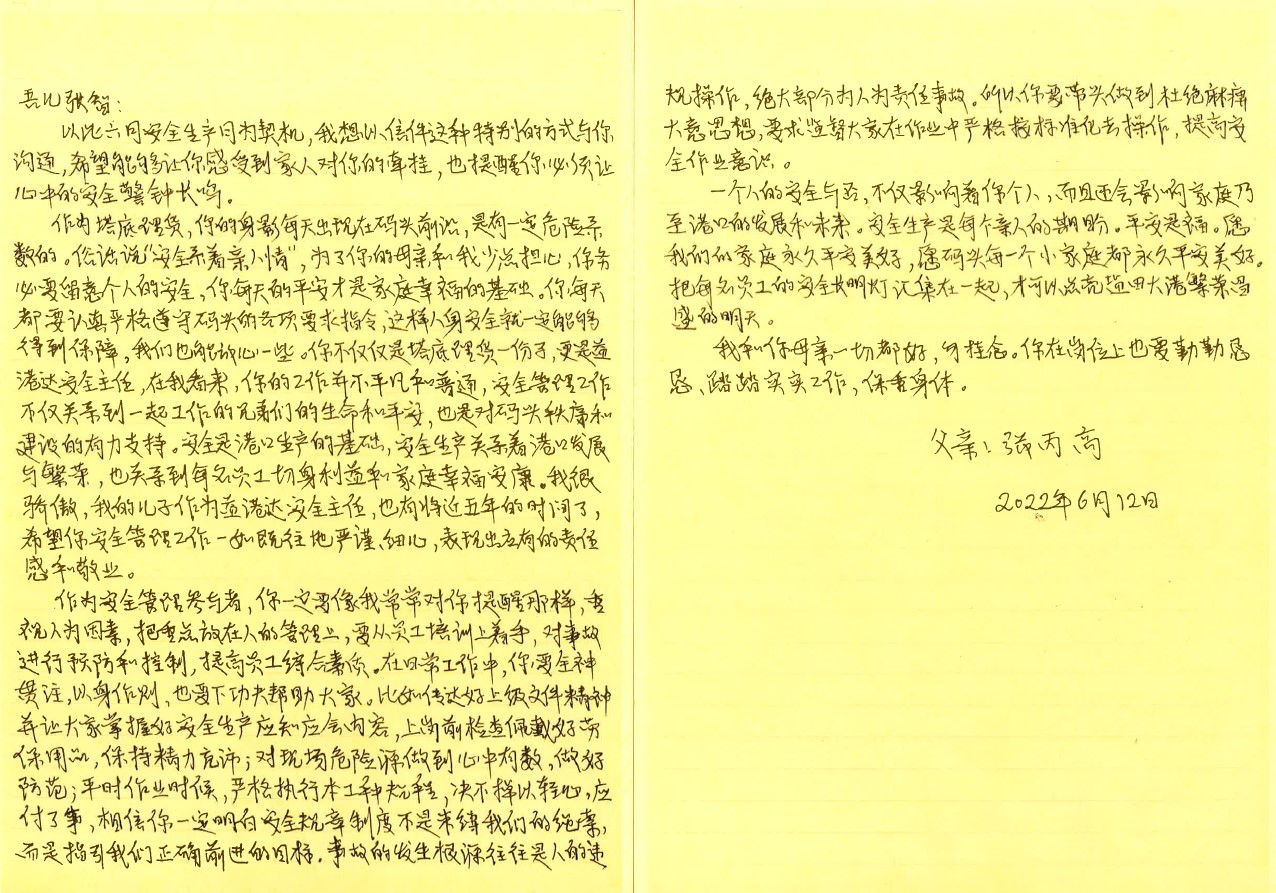 吾儿张智：
以此六月安全生产月为契机，我想以信件这种特别的方式与你
沟通，希望能够让你感受到家人对你的牵挂，也提醒你必须让
心中的安全警钟长鸣。
作为塔底理货，你的身影每天出现在码头前沿，是有一定危险系
数的。俗话说“安全系着亲人情”，为了你的母亲和我少点担心，你务
必要留意个人的安全，你每天的平安才是家庭幸福的基础。你每天
都要认真严格遵守码头的各项要求指令，这样人身安全就一定能够
得到保障，我们也能放心一些。你不仅仅是塔底理货一份子，更是益
港达安全主任，在我看来，你的工作并不平凡和普通，安全管理工作
不仅关系到一起工作的兄弟们的生命和平安，也是对码头秩序和
建设的有力支持。安全是港口生产的基础，安全生产关系着港口发展
与繁荣，也关系到每名员工切身利益和家庭幸福安康。我很
骄傲，我的儿子作为益港达安全主任，也有将近五年的时间了，
希望你安全管理工作一如既往地严谨、细心，表现出应有的责任
感和敬业。
作为安全管理参与者，你一定要像我常常对你提醒那样，重
视人为因素，把重点放在人的管理上，要从员工培训上着手，对事故
进行预防和控制，提高员工综合素质。在日常工作中，你要全神
贯注，以身作则，也要下功夫帮助大家。比如传达好上级文件精神
并让大家掌握好安全生产应知应会内容，上岗前检查佩戴好劳
保用品，保持精力充沛；对现场危险源做到心中有数，做好
防范；平时作业时候，严格执行本工种规程，决不掉以轻心，应
付了事，相信你一定明白安全规章制度不是束缚我们的绳索，
而是指引我们正确前进的目标。事故的发生根源往往是人的违
规操作，绝大部分为人为责任事故。所以你要带头做到杜绝麻痹
大意思想，要求监督大家在作业中严格按标准化去操作，提高安
全作业意识。
一个人的安全与否，不仅影响着你个人，而且还会影响家庭乃
至港口的发展和未来。安全生产是每个亲人的期盼。平安是福。愿
我们的家庭永久平安美好，愿码头每一个小家庭都永久平安美好。
把每名员工的安全长明灯汇集在一起，才可以点亮盐田大港繁荣昌
盛的明天。
我和你母亲一切都好，勿挂念。你在岗位上也要勤勤恳
恳、踏踏实实工作，保重身体。
父亲：张丙高
2022年6月12日